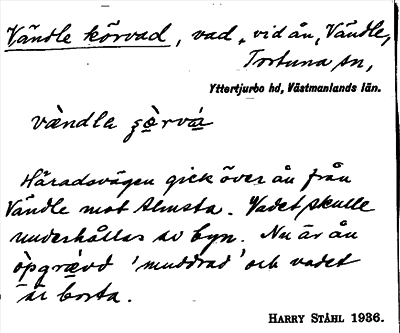 Vändle körvad, vad, vid ån, Vändle,
Tortuna sn,
Yttertjurbo hd, Västmanlands län.
vàndla şö̀rvá
Häradsvägen gick över ån från
Vändle mot Almsta. Vadet skulle
underhållas av byn. Nu är ån
ò̀pgrævd 'muddrad' och vadet
är borta.
HARRY STÅHL 1936.